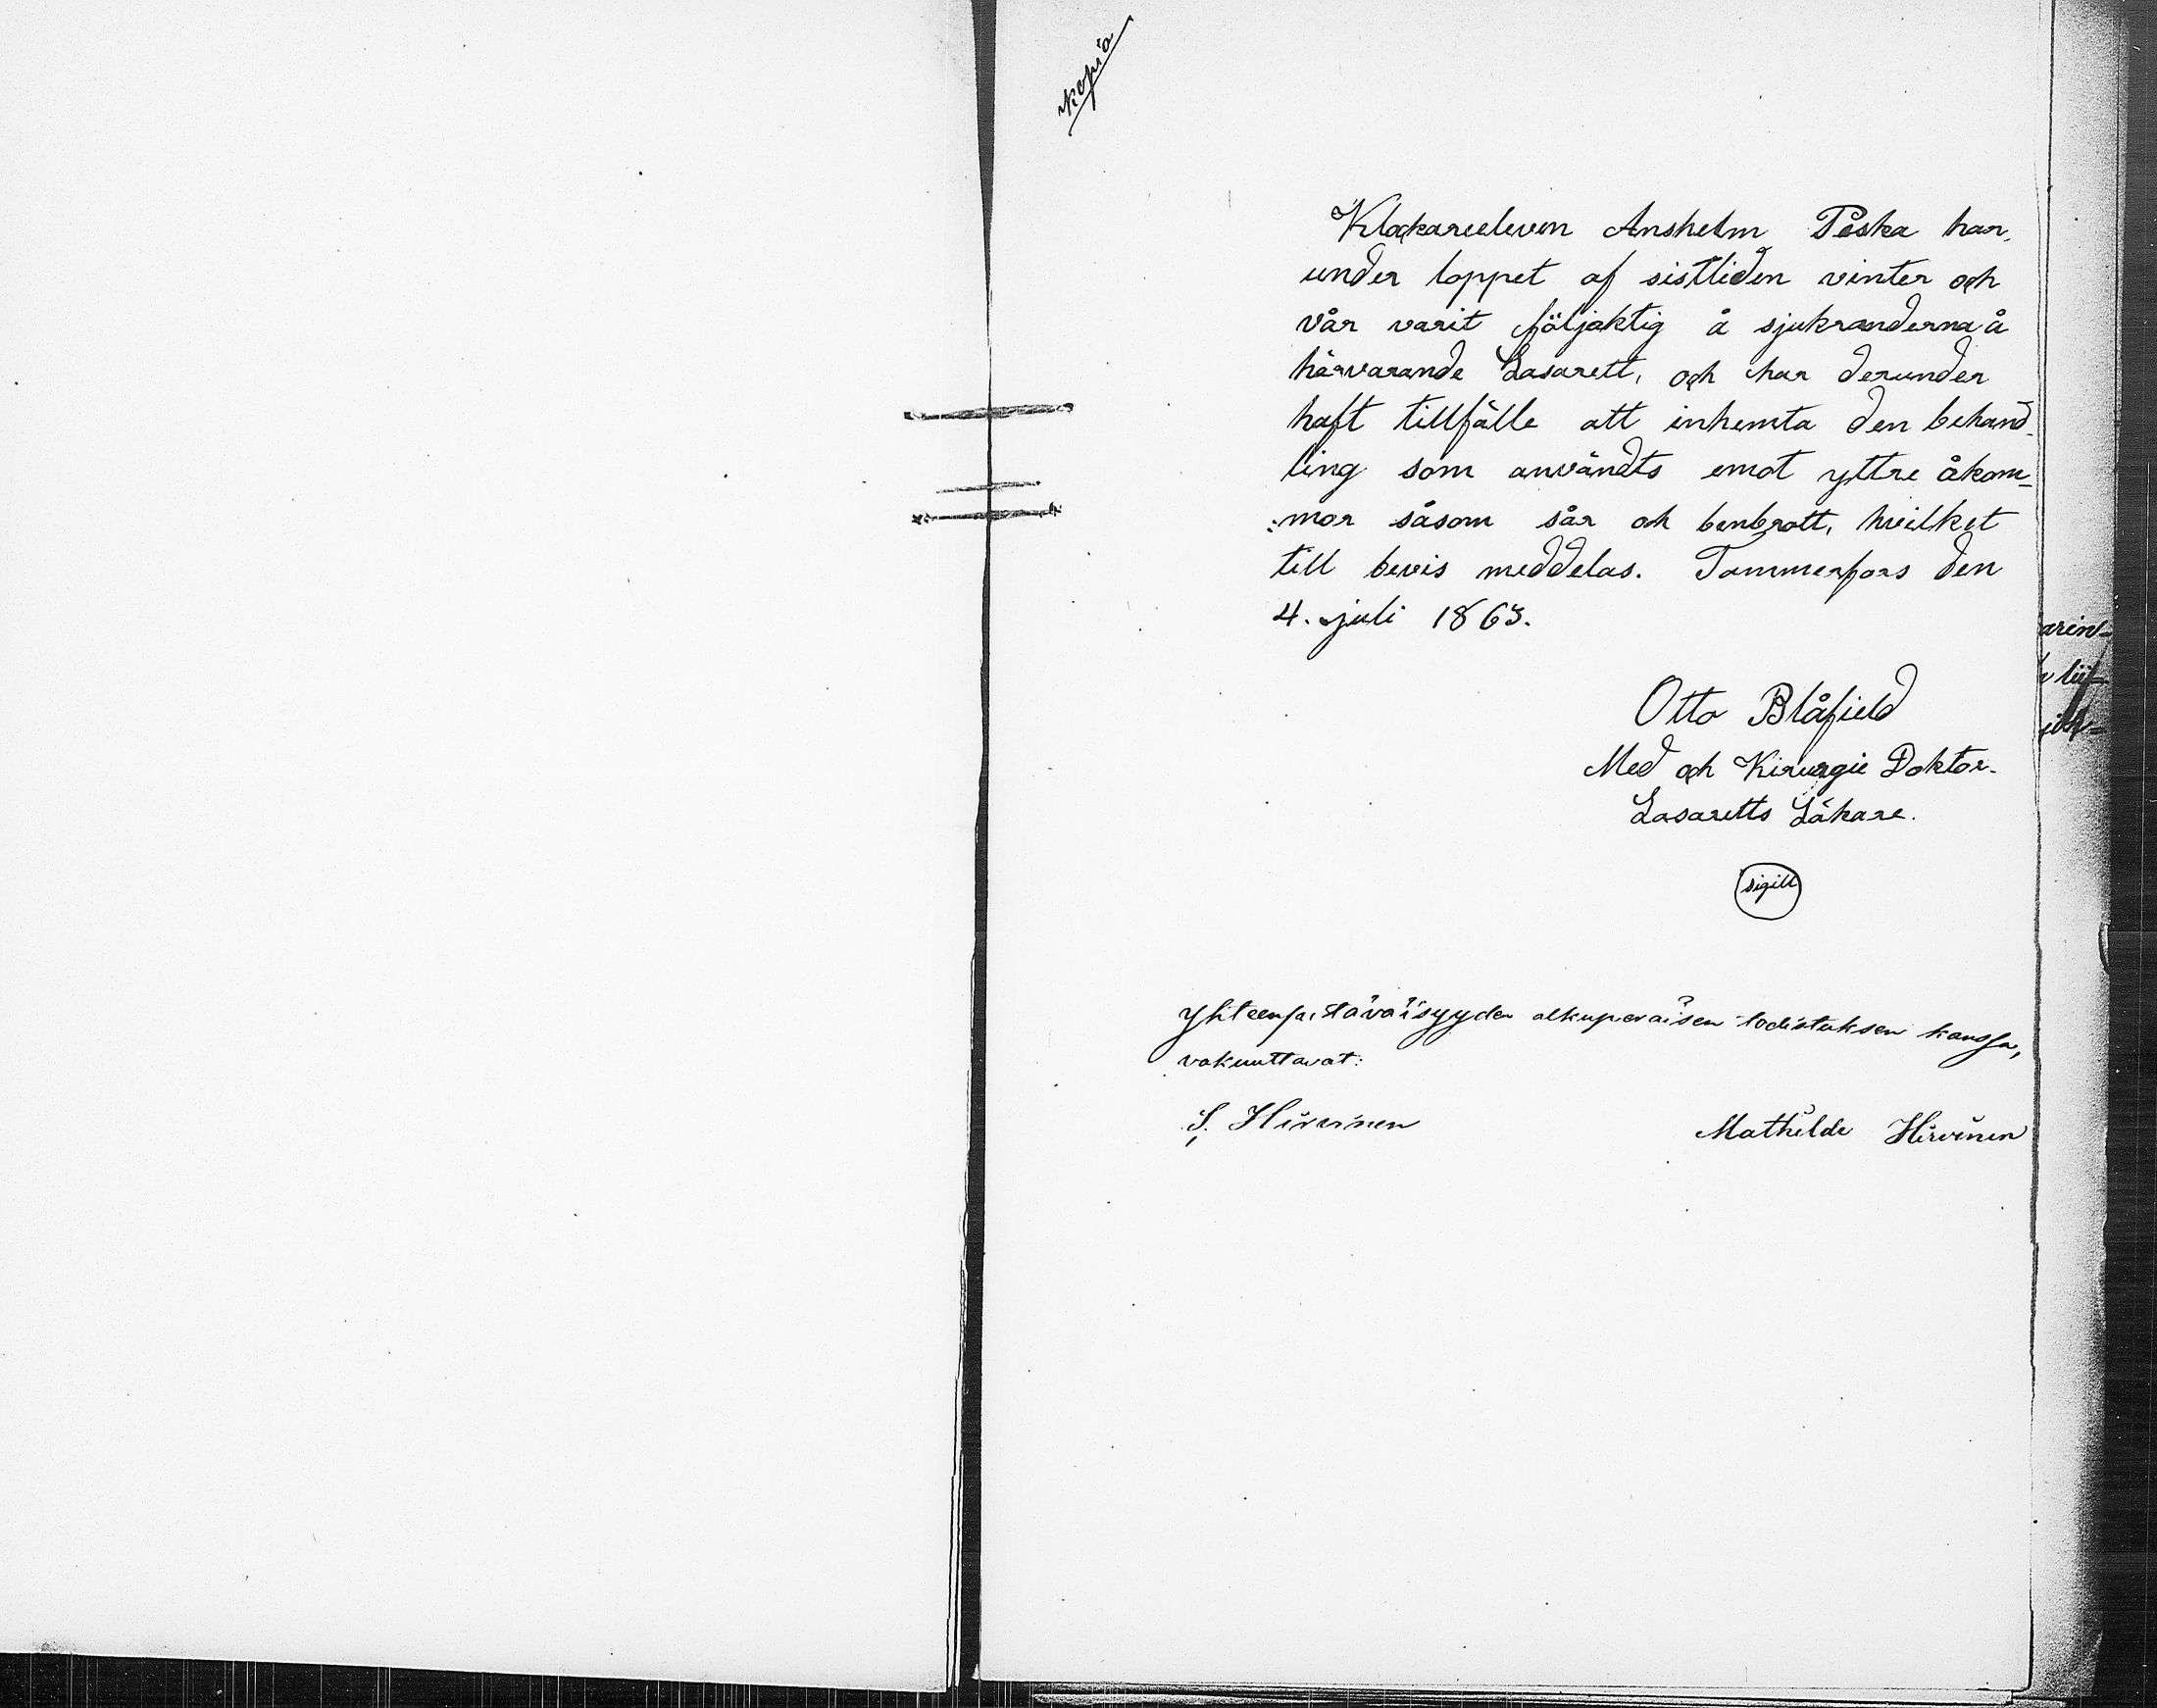 Kopia
Klockareeleven Anshelm Peska har
under loppet af sistliden vinter och
vår varit följaktig å sjukranderna å
härvarande Lasarett, och har derunder
haft tillfälle att inhemta den behand-
ling som användts emot yttre åkom-
mor såsom sår och benbrott, hvilket
till bevis meddelas. Tammerfors den
4. juli 1863.
Otto Blåfield
Med och Kirurgie Doktor.
Lasaretts Läkare.
sigill
Yhteenpitäväisyyden alkuperäisen todistuksen kanssa,
vakuuttavat:
S. Hirvinen Mathilde Hirvinen